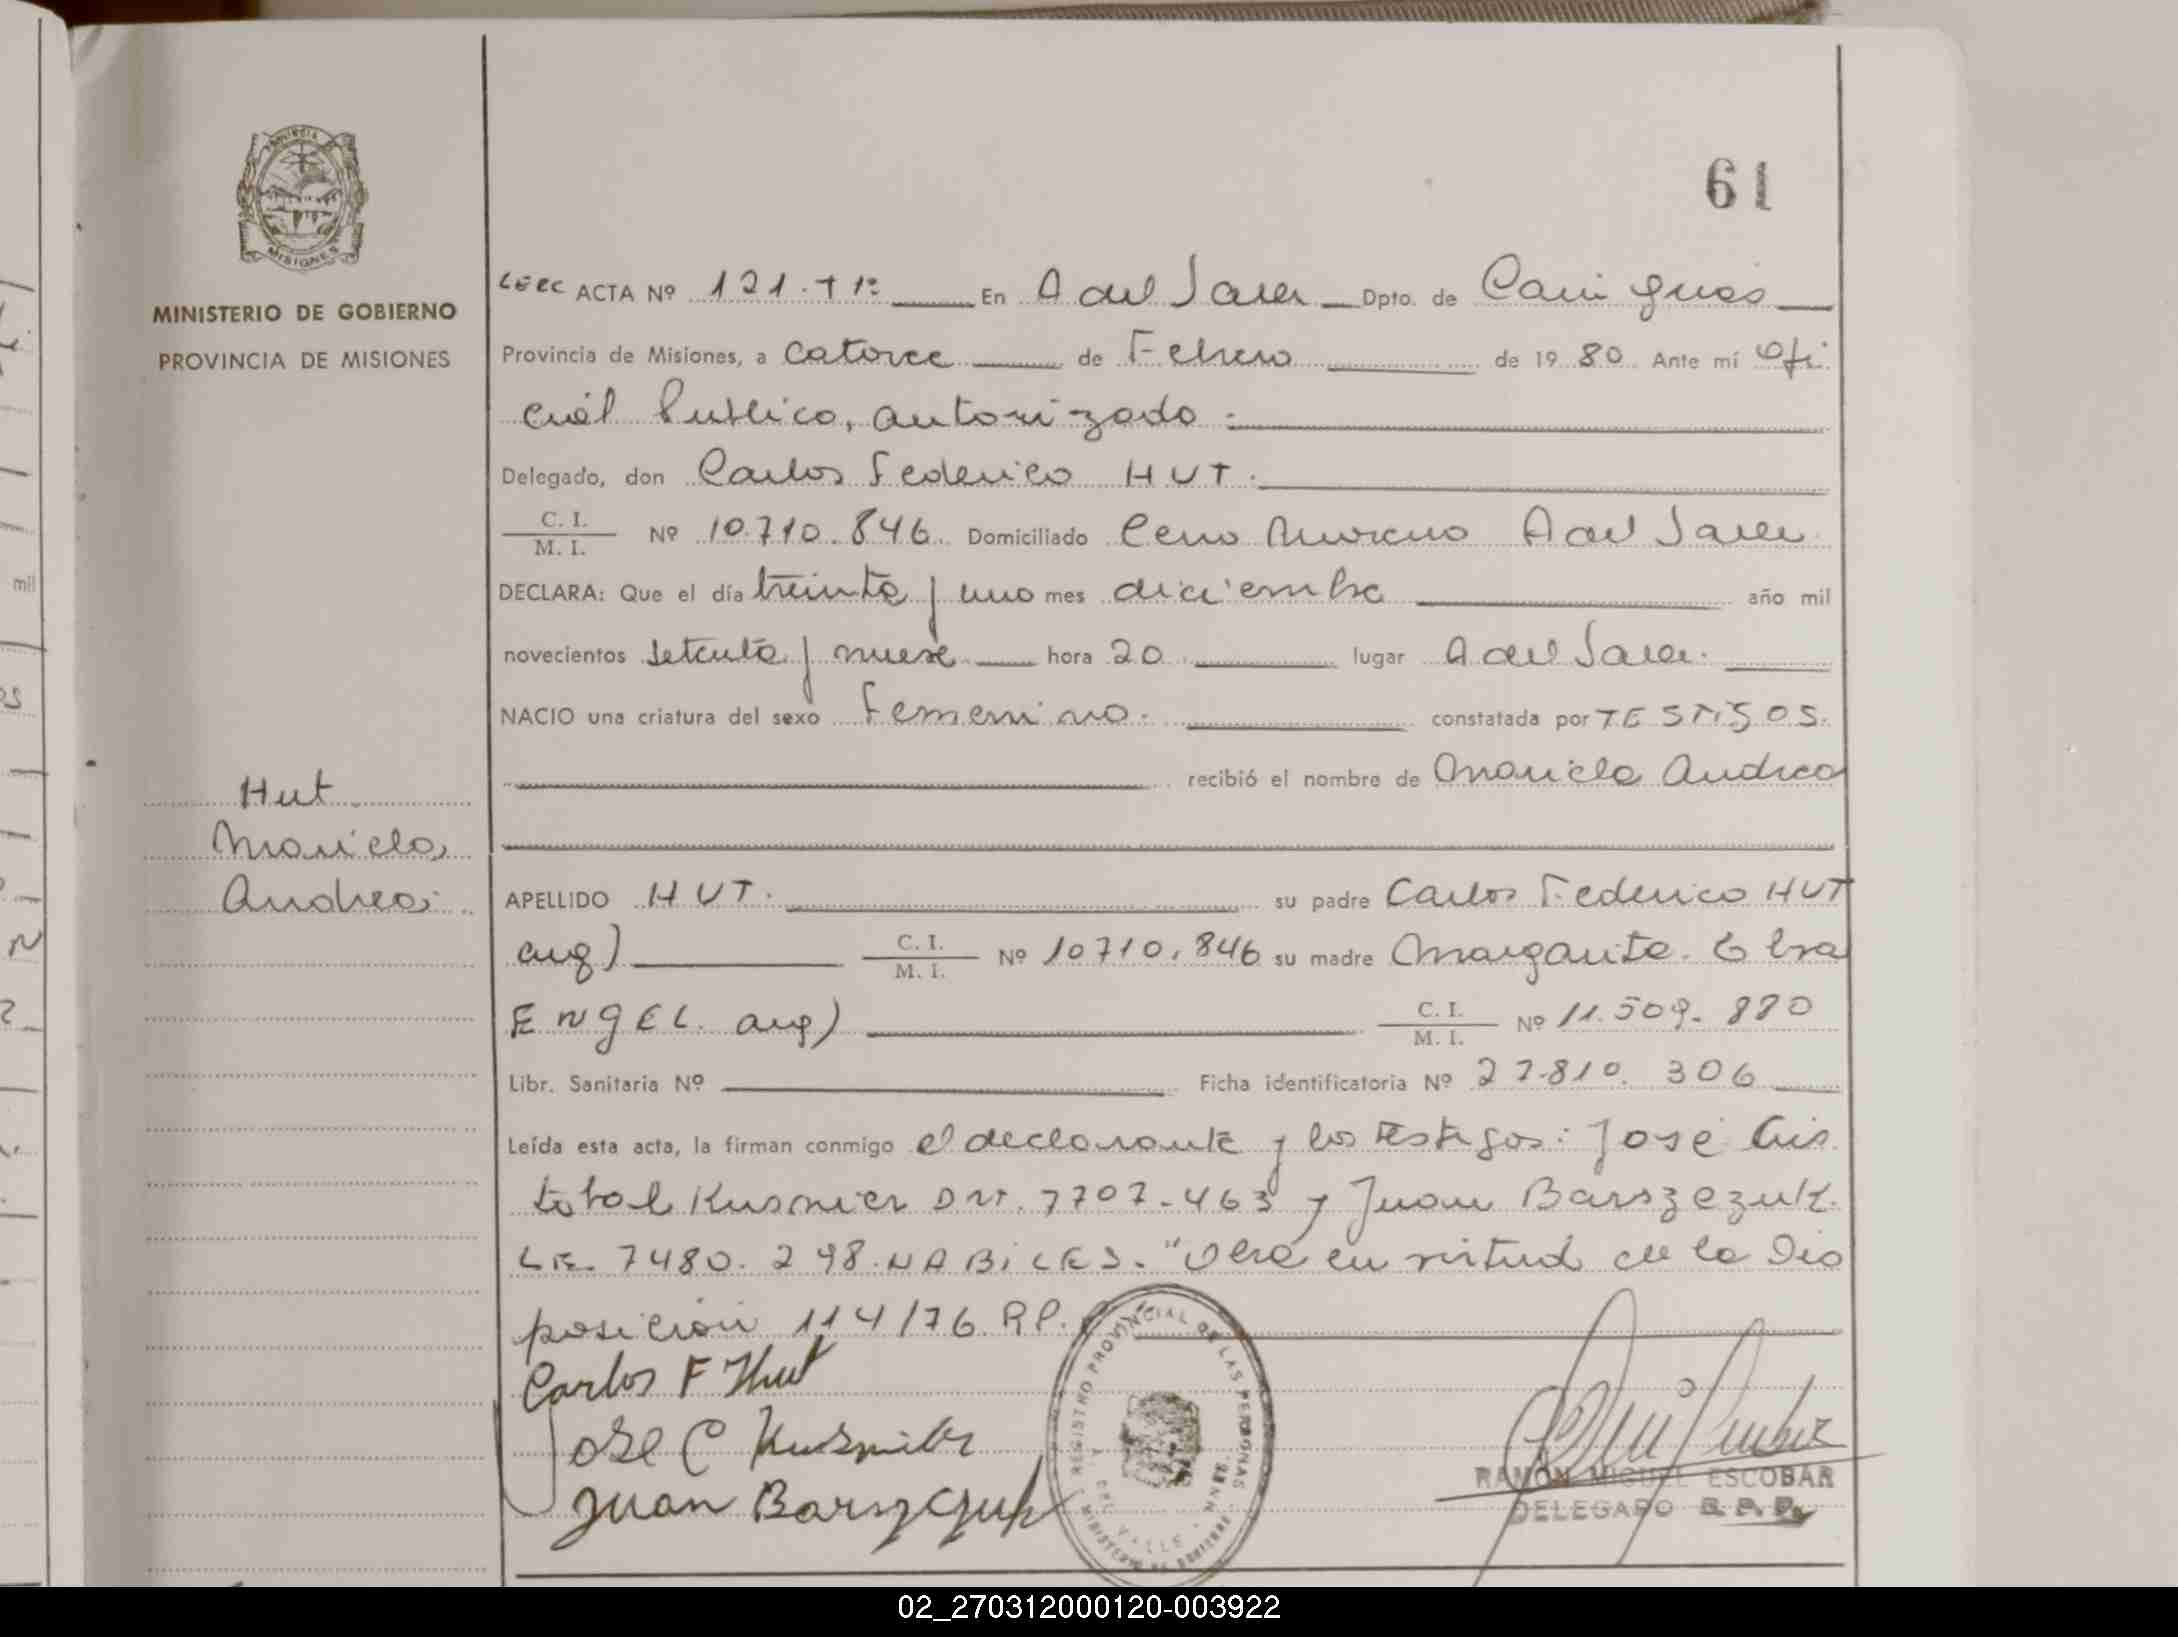 61
PROVINCIA
MISIONES
MINISTERIO DE GOBIERNO
PROVINCIA DE MISIONES
ACTA Nº 121. T 1º En A del Valle Dpto. de Cainguas
Provincia de Misiones, a Catorce de Febrero de 19 80 Ante mí Ofi
cial Publico, autorizado.
Delegado, don Carlos Federico HUT.
C. I.
M. I. Nº 10.710.846. Domiciliado Cerro Moreno A del Valle
DECLARA: Que el día treinta y uno mes diciembre año mil
novecientos setenta y nueve hora 20 lugar A del Valle.
NACIO una criatura del sexo Femenino. constatada por TESTIGOS.
recibió el nombre de Mariela Andrea
Hut
Mariela
Andrea
APELLIDO HUT. su padre Carlos Federico HUT
arg) C. I.
M. I. Nº 10710.846 su madre Margarita
ENGEL. arg) C. I.
M. I. Nº 11.509.880
Libr. Sanitaria Nº Ficha identificatoria Nº 27.810.306
Leída esta acta, la firman conmigo el declarante y los testigos: José Cris
tobal Kusnier DNI. 7707.463 y Juan Barszezuk.
LE. 7480.298. HABILES. "Vale en virtud de la Dis
posición 114/76 RP.
Carlos F Hut
Jose C Kusmier
Juan Barszczuk
REGISTRO PROVINCIAL DE LAS PERSONAS
MINISTERIO DE GOBIERNO
DEL VALLE
RAMÓN MIGUEL ESCOBAR
DELEGADO R. P. P.
02_270312000120-003922